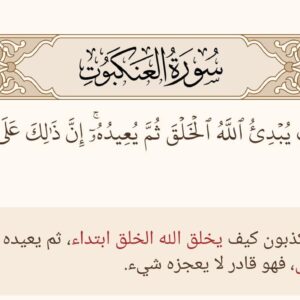 سُورَةُ العَنكَبُوتِ
يُبْدِئُ ٱللَّهُ ٱلْخَلْقَ ثُمَّ يُعِيدُهُۥٓ ۚ إِنَّ ذَٰلِكَ عَلَى
كيف يخلق الله الخلق ابتداء، ثم يعيده
، فهو قادر لا يعجزه شيء.